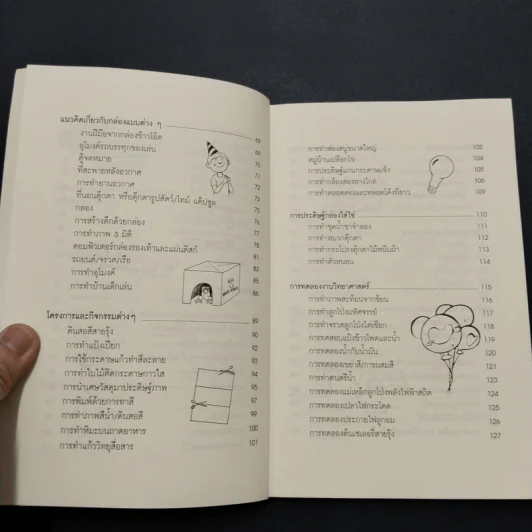 แนวคิดเกี่ยวกับกล่องแบบต่าง ๆ
งานฝีมือจากกล่องข้าวโอ๊ต 69
อุโมงค์รถบรรทุกของเล่น 69
ตู้จดหมาย 70
ที่สะพายหลังอวกาศ 71
การทำยานอวกาศ 72
ที่นอนตุ๊กตา หรือตุ๊กตารูปสัตว์/ไทม์ แค็ปซูล 73
กล่อง 75
การสร้างตึกด้วยกล่อง 76
การทำภาพ 3 มิติ 78
คอมพิวเตอร์กล่องรองเท้าและแผ่นดิสก์ 81
รถยนต์/จรวด/เรือ 83
การทำอุโมงค์ 85
การทำบ้านเด็กเล่น 86
โครงการและกิจกรรมต่างๆ 89
ดินสอสีสายรุ้ง 90
การทำแป้งเปียก 92
การใช้กระดาษแก้วทำสีละลาย 93
การทำใบไม้ติดกระดาษกาวใส 94
การนำเศษวัสดุมาประดิษฐ์ภาพ 95
การพิมพ์ด้วยการทาสี 97
การทำภาพสีน้ำ/ดินสอสี 99
การทำหิมะบนถาดอาหาร 100
การทำแก้ววิทยุสื่อสาร 101
การทำฟองสบู่ขนาดใหญ่ 102
หมู่บ้านเปลือกไข่ 104
การประดิษฐ์แกนกระดาษแข็ง 105
การทำกล้องส่องทางไกล 106
การทำหลอดตรงและหลอดโค้งที่ยาว 109
การประดิษฐ์กล่องใส่ไข่ 110
การทำชุดน้ำชาจำลอง 111
การทำหมวกตุ๊กตา 112
การทำกระโปรงตุ๊กตาไม้หนีบผ้า 113
การทำตัวหนอน 114
การทดลองงานวิทยาศาสตร์ 115
การทำภาพสะท้อนจากช้อน 116
การทำลูกโป่งมหัศจรรย์ 117
การทำจรวดลูกโป่งไต่เชือก 118
การทดสอบแป้งข้าวโพดและน้ำ 119
การทดลองน้ำกับน้ำมัน 120
การทดลองเขย่าสี/การผสมสี 121
การทำดนตรีน้ำ 123
การทดลองแม่เหล็กลูกโป่งพลังไฟฟ้าสถิต 124
การทดลองเปลวไฟกระโดด 125
การทดลองประกายไฟลูกอม 126
การทดลองต้นเซเลอรี่สายรุ้ง 127